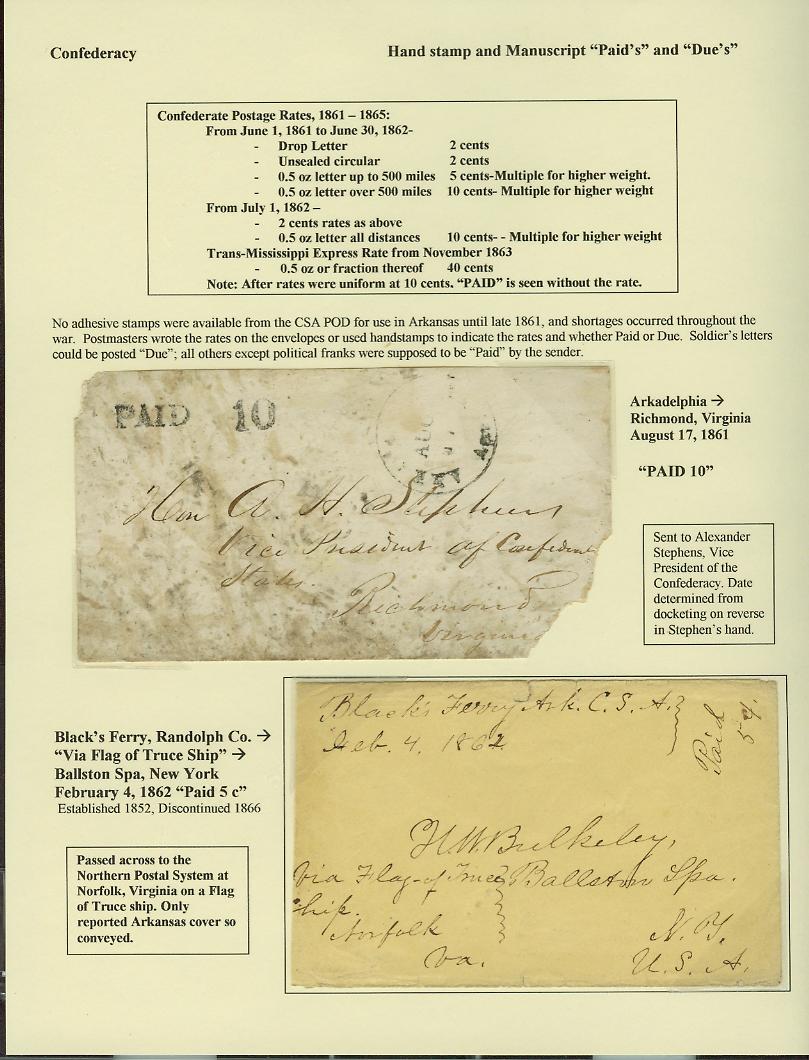 Confederacy
Hand stamp and Manuscript “Paid's” and “Due's”
Confederate Postage Rates, 1861 – 1865:
From June 1, 1861 to June 30, 1862-
- Drop Letter 2 cents
- Unsealed circular 2 cents
- 0.5 oz letter up to 500 miles 5 cents-Multiple for higher weight.
- 0.5 oz letter over 500 miles 10 cents- Multiple for higher weight
From July 1, 1862 –
- 2 cents rates as above
- 0.5 oz letter all distances 10 cents- - Multiple for higher weight
Trans-Mississippi Express Rate from November 1863
- 0.5 oz or fraction thereof 40 cents
Note: After rates were uniform at 10 cents, “PAID” is seen without the rate.
No adhesive stamps were available from the CSA POD for use in Arkansas until late 1861, and shortages occurred throughout the
war. Postmasters wrote the rates on the envelopes or used handstamps to indicate the rates and whether Paid or Due. Soldier's letters
could be posted “Due”; all others except political franks were supposed to be “Paid” by the sender.
PAID 10
AUG
ARK
Hon A. H. Stephens
Vice President of Confederate
States
Richmond
Virginia
Arkadelphia →
Richmond, Virginia
August 17, 1861
“PAID 10”
Sent to Alexander
Stephens, Vice
President of the
Confederacy. Date
determined from
docketing on reverse
in Stephen's hand.
Black's Ferry, Randolph Co. →
“Via Flag of Truce Ship” →
Ballston Spa, New York
February 4, 1862 “Paid 5 c”
Established 1852, Discontinued 1866
Passed across to the
Northern Postal System at
Norfolk, Virginia on a Flag
of Truce ship. Only
reported Arkansas cover so
conveyed.
Black's Ferry Ark. C. S. A.
Feb. 4. 1862
Paid
5
H.W. Bulkeley,
Via Flag-of Truce
Ballston Spa.
Ship.
Norfolk
Va.
N. Y.
U. S. A.